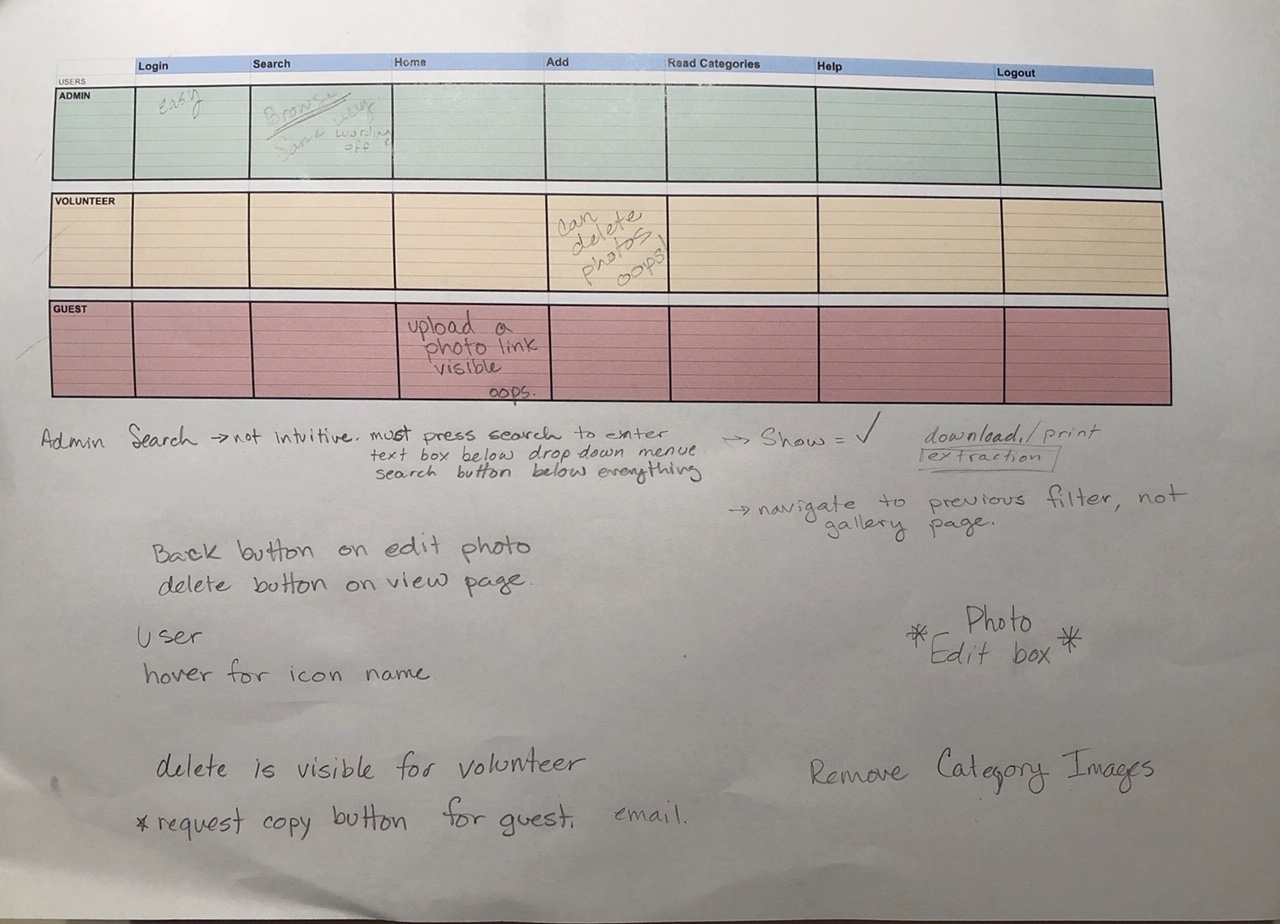 Login Search Home Add Read Categories Help Logout
USERS
ADMIN
easy
Browse
Same way
wording
off
VOLUNTEER
can
delete
photos
oops!
GUEST
upload a
photo link
visible
oops.
Admin Search → not intuitive. must press search to enter
text box below drop down menue
search button below everything
→ Show = ✓
download / print
extraction
→ navigate to previous filter, not
gallery page.
Back button on edit photo
delete button on view page.
User
hover for icon name
* Photo
Edit box *
delete is visible for volunteer
* request copy button for guest. email.
Remove Category Images